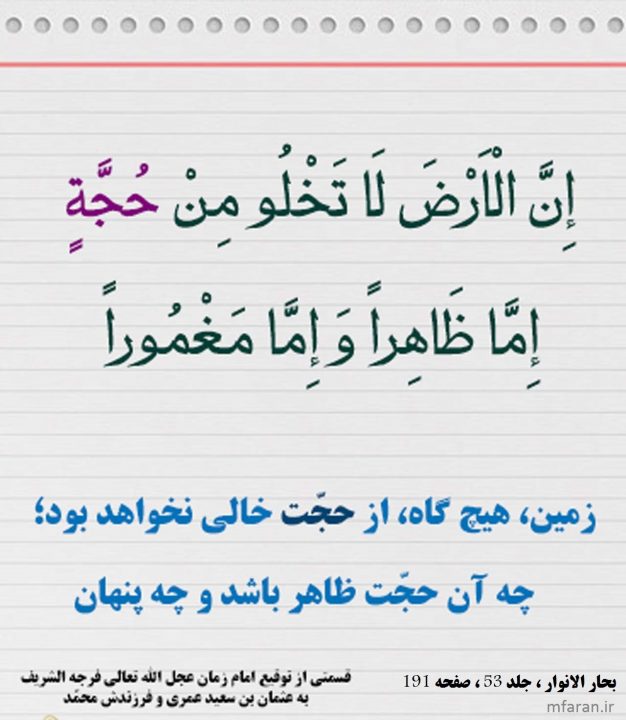 إِنَّ الْاَرْضَ لَا تَخْلُو مِنْ حُجَّةٍ
إِمَّا ظَاهِراً وَ إِمَّا مَغْمُوراً
زمین، هیچ گاه، از حجّت خالی نخواهد بود؛
چه آن حجّت ظاهر باشد و چه پنهان
بحار الانوار ، جلد 53 ، صفحه 191
قسمتی از توقیع امام زمان عجل الله تعالی فرجه الشریف
به عثمان بن سعید عمری و فرزندش محمّد
mfaran.ir